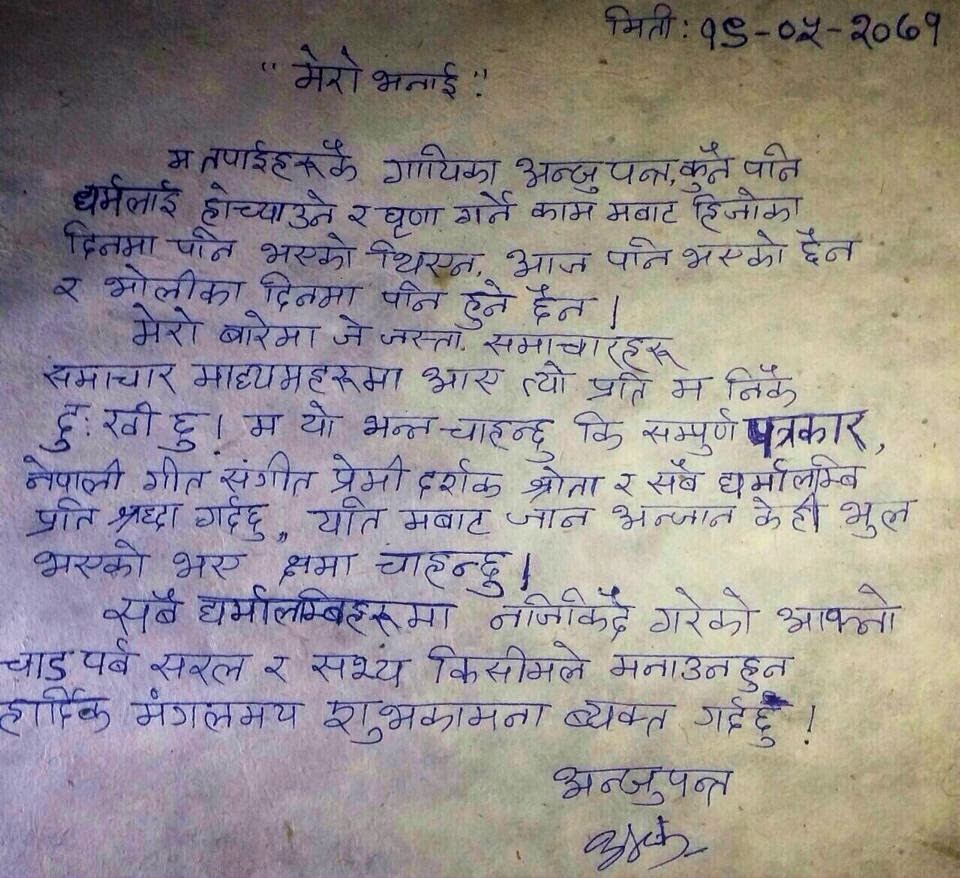 मिती : १९-०५-२०७१
"मेरो भनाई"
म तपाईहरूकै गायिका अन्जु पन्त, कुनै पनि
धर्मलाई होच्याउने र घृणा गर्ने काम मबाट हिजोका
दिनमा पनि भएको थिएन, आज पनि भएको छैन
र भोलीका दिनमा पनि हुने छैन ।
मेरो बारेमा जे जस्ता समाचारहरू
समाचार माध्यमहरूमा आए त्यो प्रति म निकै
दु:खी छु । म यो भन्न चाहन्छु कि सम्पुर्ण पत्रकार,
नेपाली गीत संगीत प्रेमी दर्शक श्रोता र सबै धर्मालम्बि
प्रति श्रद्धा गर्दछु ,, यति मबाट जान अन्जान केही भुल
भएको भए क्षमा चाहन्छु ।
सबै धर्मालम्बिहरूमा नजिकिदै गरेको आफ्नो
चाड पर्ब सरल र सभ्य किसीमले मनाउनहुन
हार्दिक मंगलमय शुभकामना ब्यक्त गर्दछु !
अन्जु पन्त